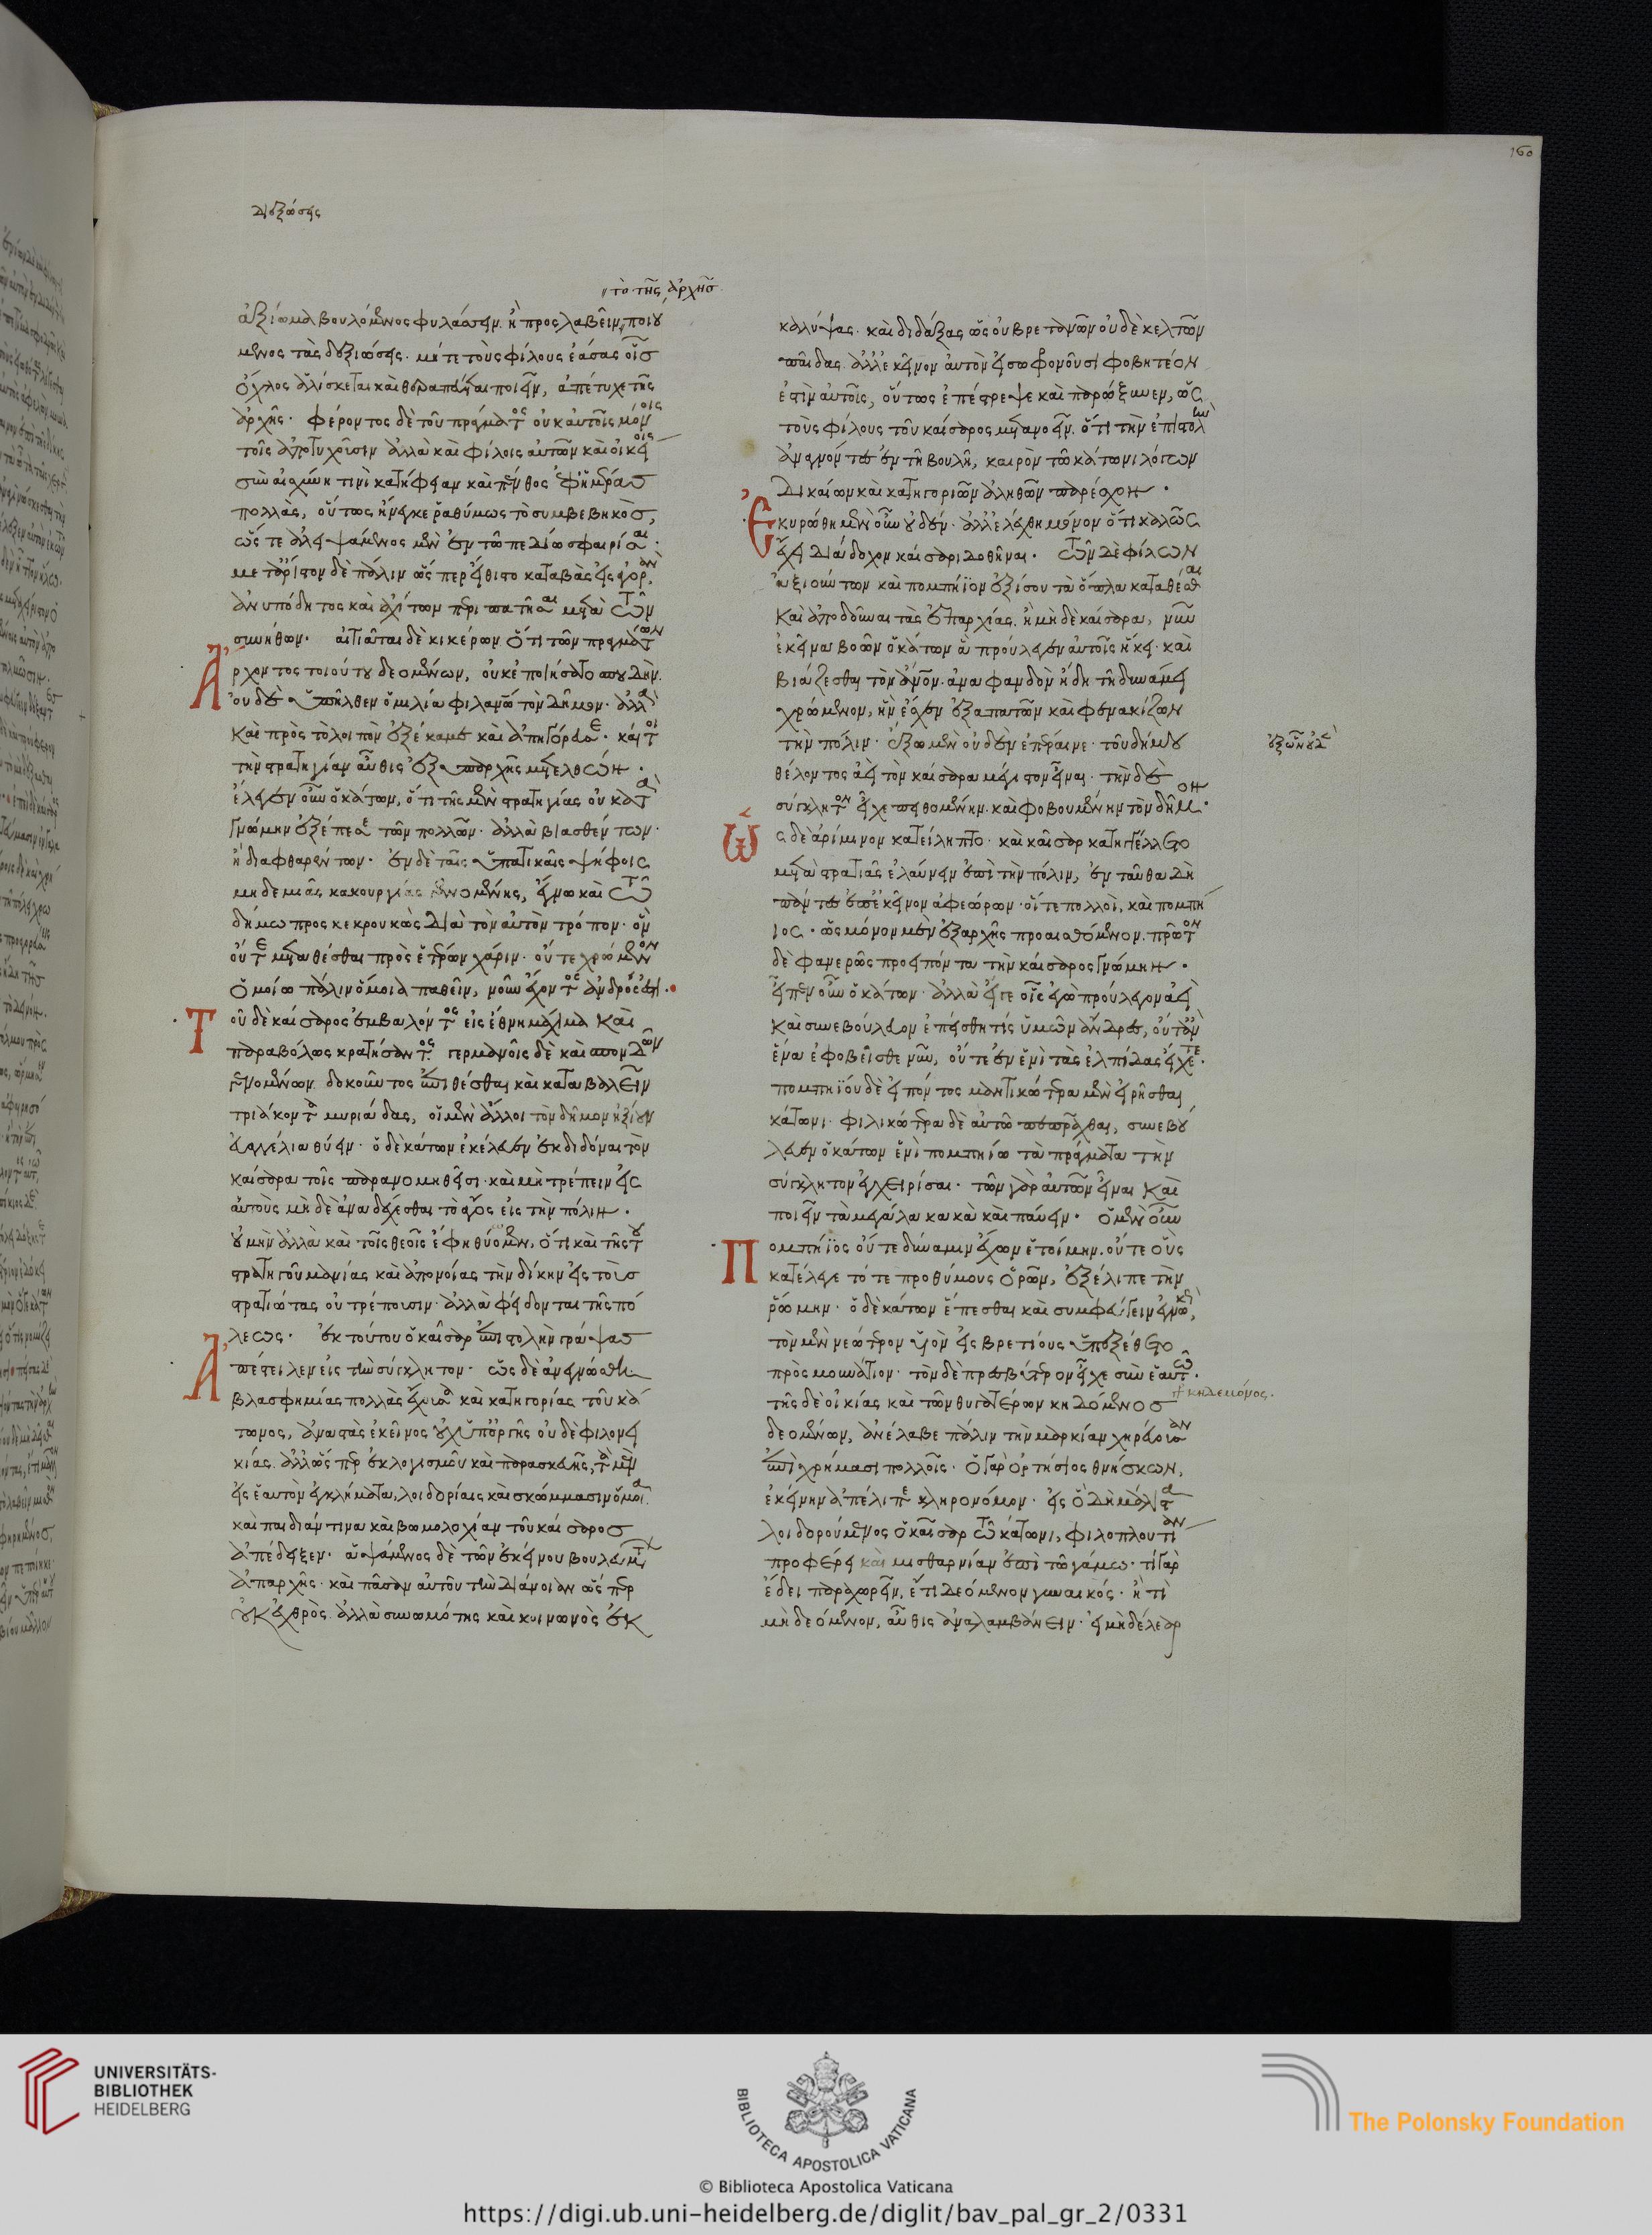 δεξιώσεις
τὸ τῆς ἀρχῆς
ἀξίωμα βουλόμενος φυλάσσειν. ἢ προσλαβεῖν, ποιού
μενος τὰς δεξιώσεις. μήτε τοὺς φίλους ἐάσας οἷς
ὄχλος ἁλίσκεται καὶ θεραπεύεται ποιεῖν, ἀπέτυχε τῆς
ἀρχῆς. φέροντος δὲ τοῦ πράγματος οὐκ αὐτοῖς μόνοις
τοῖς ἀποτυχοῦσιν ἀλλὰ καὶ φίλοις αὐτῶν καὶ οἰκείοις
σὺν αἰσχύνη τινὶ κατήφειαν καὶ πένθος ἐφ' ἡμέρας
πολλὰς, οὕτως ἤνεγκε ῥαθύμως τὸ συμβεβηκὸς,
ὥς τε ἀλειψάμενος μὲν ἐν τῶ πεδίω σφαιρίσαι.
μετ' ἄριστον δὲ πάλιν ὥσπερ εἴθιστο καταβὰς εἰς ἀγορὰν,
ἀνυπόδητος καὶ ἀχίτων περιπατῆσαι μετὰ τῶν
συνήθων. αἰτιᾶται δὲ κικέρων ὅτι τῶν πραγμάτων
Ἄρχοντος τοιούτου δεομένων, οὐκ ἐποιήσατο σπουδὴν.
οὐδὲ ὑπῆλθεν ὁμιλία φιλανθρώπω τὸν δῆμον. ἀλλὰ
καὶ πρὸς τὸ λοιπὸν ἐξέκαμε καὶ ἀπηγόρευσε. καίτοι
τὴν στρατηγίαν αὖθις ἐξ ὑπαρχῆς μετελθών.
ἔλεγεν οὖν ὁ κάτων, ὅτι τῆς μὲν στρατηγίας οὐ κατὰ
γνώμην ἐξέπεσε τῶν πολλῶν. ἀλλὰ βιασθέντων.
ἢ διαφθαρέντων. ἐν δὲ ταῖς ὑπατικαῖς ψήφοις
μηδεμιᾶς κακουργίας γενομένης, ἔγνω καὶ τῶ
δήμω προσκεκρουκὼς διὰ τὸν αὐτοῦ τρόπον. ὃν
οὔτε μεταθέσθαι πρὸς ἑτέρων χάριν. οὔτε χρώμενον
ὁμοίω πάλιν ὅμοια παθεῖν, νοῦν ἔχοντος ἀνδρός ἐστι.
Τοῦ δὲ καίσαρος ἐμβαλόντος εἰς ἔθνη μάχιμα καὶ
παραβόλως κρατήσαντος. γερμανοῖς δὲ καὶ σπονδῶν
γενομένων. δοκοῦντος ἐπιθέσθαι καὶ καταβαλεῖν
τριάκοντα μυριάδας, οἱ μὲν ἄλλοι τὸν δῆμον ἠξίουν
εὐαγγέλια θύειν. ὁ δὲ κάτων ἐκέλευεν ἐκδιδόναι τὸν
καίσαρα τοῖς παρανομηθεῖσι. καὶ μὴ τρέπειν εἰς
αὑτοὺς μὴδὲ ἀναδέχεσθαι τὸ ἄγος εἰς τὴν πόλιν.
οὐ μὴν ἀλλὰ καὶ τοῖς θεοῖς ἔφη θύωμεν, ὅτι καὶ τῆς τοῦ
στρατηγοῦ μανίας καὶ ἀπονοίας τὴν δίκην εἰς τοὺς
στρατιώτας οὐ τρέπουσιν. ἀλλὰ φείδονται τῆς πό
λεως. ἐκ τούτου ὁ καῖσαρ ἐπιστολὴν γράψας
Ἀπέστειλεν εἰς τὴν σύγκλητον. ὡς δὲ ἀνεγνώσθη
βλασφημίας πολλὰς ἔχουσα καὶ κατηγορίας τοῦ κά
τωνος, ἀναστὰς ἐκεῖνος οὐχ ὑπὀργῆς οὐδὲ φιλονει
κίας. ἀλλ' ὥσπερ ἐκ λογισμοῦ καὶ παρασκευῆς, τὰ μὲν
εἰς ἑαυτὸν ἐγκλήματα, λοιδορίαις καὶ σκώμμασιν ὅμοια.
καὶ παιδιάν τινα καὶ βωμολοχίαν τοῦ καίσαρος
ἀπέδειξεν. ἁψάμενος δὲ τῶν ἐκείνου βουλευμάτων
ἀπ' ἀρχῆς. καὶ πᾶσαν αὐτοῦ τὴν διάνοιαν ὥσπερ
οὐκ ἐχθρὸς. ἀλλὰ συνωμότης καὶ κοινωνὸς ἐκ
καλύψας. καὶ διδάξας ὡς οὐ βρετανῶν οὐδὲ κελτῶν
παῖδας. ἀλλ' ἐκεῖνον αὐτὸν εἰ σωφρονοῦσι φοβητέον
ἐστὶν αὐτοῖς, οὕτως ἐπέστρεψε καὶ παρώξυνεν, ὡς
τοὺς φίλους τοῦ καίσαρος μετανοεῖν. ὅτι τὴν ἐπιστολὴν
ἀναγνόντες ἐν τῆ βουλῆ, καιρὸν τῶ κάτωνι λόγων
δικαίων καὶ κατηγοριῶν ἀληθῶν παρέσχον.
Ἐκυρώθη μὲν οὖν οὐδέν. ἀλλ' ἐλέχθη μόνον ὅτι καλῶς
ἔχει διάδοχον καίσαρι δοθῆναι. τῶν δὲ φίλων
ἀξιούντων καὶ πομπήϊον ἐξίσου τὰ ὅπλα καταθέσθαι
καὶ ἀποδοῦναι τὰς ἐπαρχίας. ἢ μὴ δὲ καίσαρα, νῦν
ἐκεῖνα βοῶν ὁ κάτων ἃ προύλεγεν αὐτοῖς ἥκει. καὶ
βιάζεσθαι τὸν ἄνθρωπον. ἀναφανδὸν ἤδη τῆ δυνάμει
χρώμενον, ἣν ἔσχεν ἐξαπατῶν καὶ φενακίζων
τὴν πόλιν. ἔξω μὲν οὐδὲν ἐπέραινε. τοῦ δήμου
θέλοντος ἀεὶ τὸν καίσαρα μέγιστον εἶναι. τὴν δὲ
σύγκλητον εἶχε πειθομένην. καὶ φοβουμένην τὸν δῆμον.
Ὡς δὲ ἀρίμινον κατείληπτο. καὶ καῖσαρ κατηγγέλλετο
μετὰ στρατιᾶς ἐλαύνειν ἐπὶ τὴν πόλιν, ἐνταῦθα δὴ
πάντες ἐπ' ἐκεῖνον ἀφεώρων. οἵ τε πολλοὶ, καὶ πομπή
ιος. ὡς μόνον μὲν ἐξαρχῆς προαισθόμενον. πρῶτον
δὲ φανερῶς προειπόντα τὴν καίσαρος γνώμην.
εἶπεν οὖν ὁ κάτων. ἀλλὰ εἴγε οἷς ἐγὼ προύλεγον ἀεὶ
καὶ συνεβούλευον ἐπείσθη τίς ὑμῶν ἄνδρες, οὔτ' ἂν
ἕνα ἐφοβεῖσθε νῦν, οὔτε ἐν ἑνὶ τὰς ἐλπίδας εἴχετε.
πομπηϊού δὲ εἰπόντος μαντικώτερα μὲν εἰρῆσθαι
κάτωνι. φιλικώτερα δὲ αὐτῶ πεπρᾶχθαι, συνεβού
λευεν ὁ κάτων ἑνὶ πομπηίω τὰ πράγματα τὴν
σύγκλητον ἐγχειρίσαι. τῶν γὰρ αὐτῶν εἶναι καὶ
ποιεῖν τὰ μεγάλα κακὰ καὶ παύειν. ὁ μὲν οὖν
Πομπήϊος οὔτε δύναμιν ἔχων ἑτοίμην. οὔτε οὓς
κατέλεγε τότε προθύμους ὁρῶν, ἐξέλιπε τὴν
ῥώμην. ὁ δὲ κάτων ἕπεσθαι καὶ συμφεύγειν ἐγνωκὼς,
τὸν μὲν νεώτερον υἱὸν εἰς βρετίους ὑπεξέθετο
πρὸς μουνάτιον. τὸν δὲ πρεσβύτερον εἶχε σὺν ἑαυτῶ.
τῆς δὲ οἰκίας καὶ τῶν θυγατέρων κηδόμενος
δεομένων, ἀνέλαβε πάλιν τὴν μαρκίαν χηρεύουσαν
ἐπὶ χρήμασι πολλοῖς. ὁ γὰρ ὁρτήσιος θνήσκων,
ἐκείνην ἀπέλιπε κληρονόμον. εἰς ὃ δὴ μάλιστα
λοιδορούμενος ὁ καῖσαρ τῶ κάτωνι, φιλοπλουτίαν
προφέρει καὶ μισθαρνίαν ἐπὶ τῶ γάμω. τί γὰρ
ἔδει παραχωρεῖν, ἔτι δεόμενον γυναικός. ἢ τὶ
μὴ δεόμενον, αὖθις ἀναλαμβάνειν. εἰ μὴ δέλεαρ
κηδεμόνος.
160
UNIVERSITÄTS-
BIBLIOTHEK
HEIDELBERG
BIBLIOTECA APOSTOLICA VATICANA
The Polonsky Foundation
© Biblioteca Apostolica Vaticana
https://digi.ub.uni-heidelberg.de/diglit/bav_pal_gr_2/0331